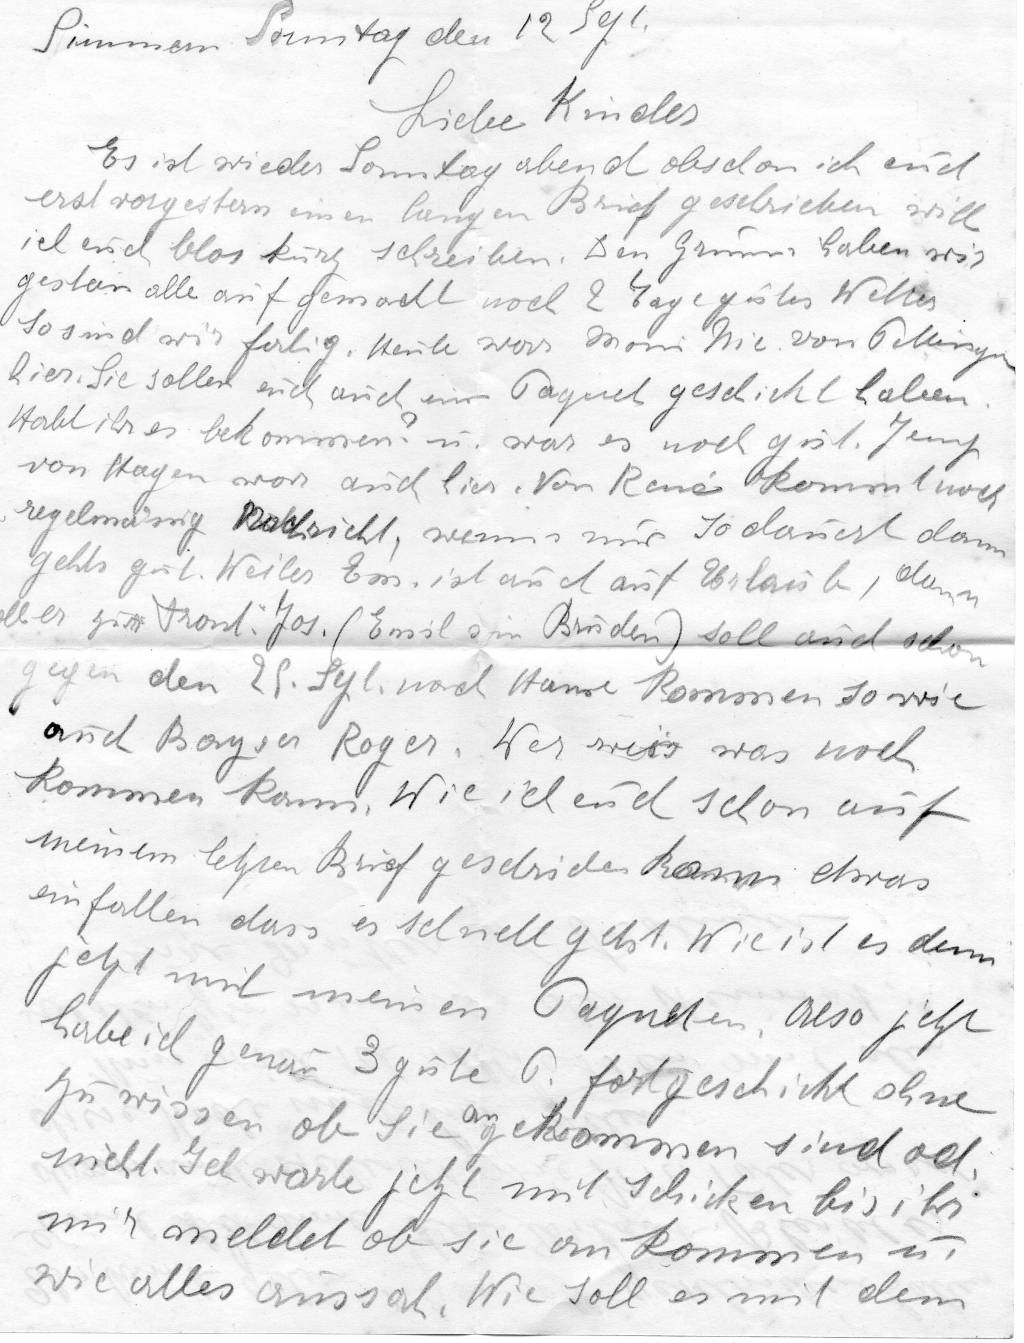 Simmern Sonntag den 12 Sept.
Liebe Kinder
Es ist wieder Sonntag abend obschon ich euch
erst vorgestern einen langen Brief geschrieben will
ich euch blos kurz schreiben. Den haben wir
gestern alle auf gemacht noch 2 Tage gutes Wetter
so sind wir fertig. Heute war Nic. von Pettingen
hier. Sie sollen euch auch ein Paquet geschickt haben.
Habt ihr es bekommen? u. war es noch gut. Jemp
von Hagen war auch hier. Von René kommt noch
regelmäsig Nachricht, wenns nur so dauert dann
gehts gut. Weiler Em. ist auch auf Urlaub, dann
er zur Front. Jos. (Emil sin Bruder) soll auch schon
gegen den 25. Sept. nach Hause kommen sowie
auch Bayser Roger. Wer weiss was noch
kommen kann. Wie ich euch schon auf
meinem letzten Brief geschrieben kann etwas
einfallen dass es schnell geht. Wie ist es denn
jetzt mit meinen Paqueten. Also jetzt
habe ich genau 3 gute P. fortgeschickt ohne
zu wissen ob sie angekommen sind od.
nicht. Ich warte jetzt mit schicken bis ihr
mir meldet ob sie an kommen u.
wie alles aussah. Wie soll es mit dem